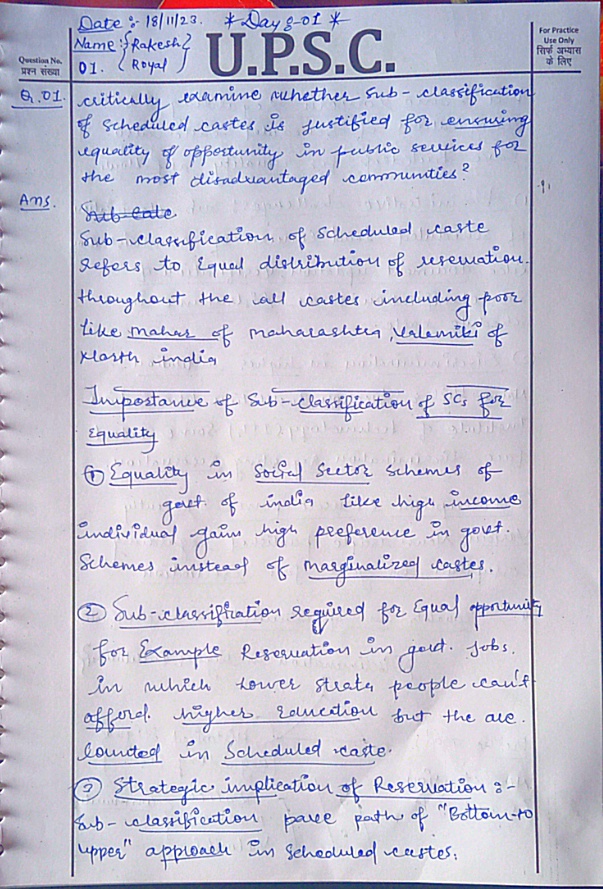 Date :- 18/11/23. * Day 8-01 *
Name :- {Rakesh
01. Royal}
U.P.S.C.
For Practice
Use Only
सिर्फ अभ्यास
के लिए
Question No.
प्रश्न संख्या
Q.01. critically examine whether Sub-classification
of scheduled castes is justified for ensuring
equality of opportunity in public services for
the most disadvantaged communities?
Ans.
Sub-classification of scheduled caste
refers to Equal distribution of reservation
throughout the all castes including poor
like mahar of maharashtra, Valamiki of
North india
Importance of Sub-classification of SCs for
equality
① Equality in Social Sector Schemes of
govt. of india like high income
individual gain high preference in govt.
Schemes instead of marginalized castes.
② Sub-classification required for Equal opportunity
for Example Reservation in govt. Jobs.
in which lower strata people can't
afford higher education but the are.
counted in Scheduled caste.
③ Strategic implication of Reservation :-
Sub-classification pave path of "Bottom-to
upper" approach in scheduled castes.